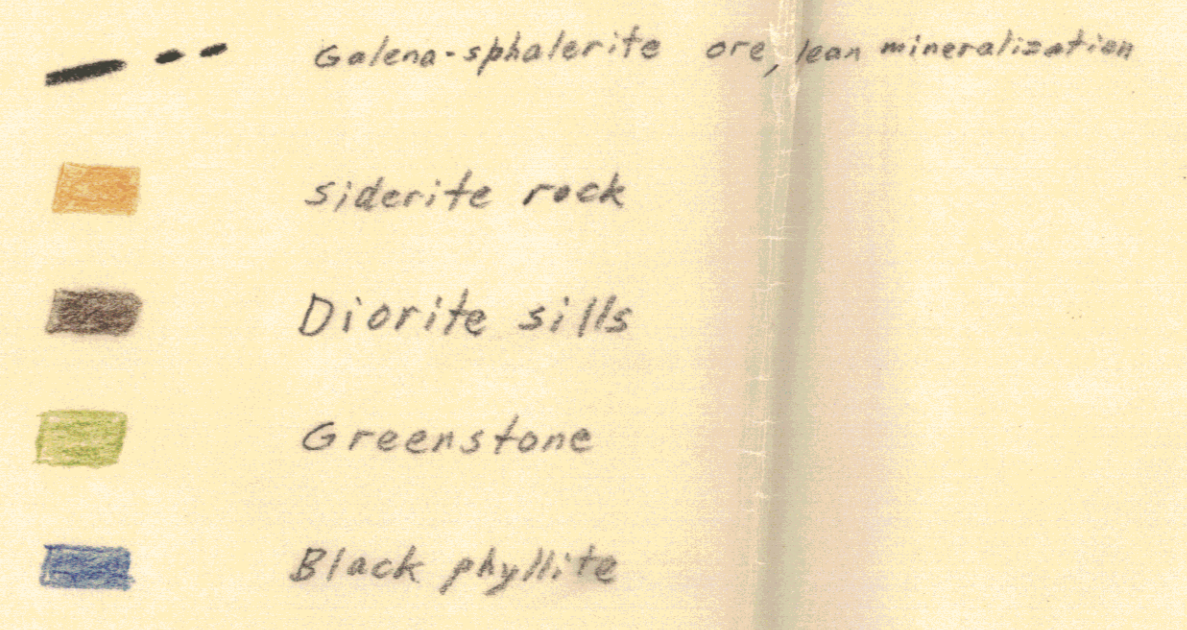 Galena-sphalerite ore, lean mineralization
Siderite rock
Diorite sills
Greenstone
Black phyllite